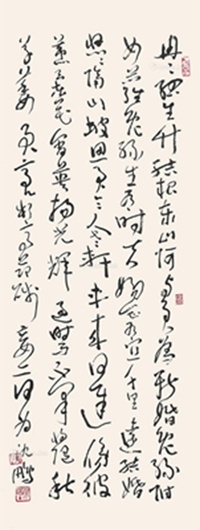 冉冉孤生竹结根泰山阿与君为新婚兔丝附
女萝兔丝生有时夫妇会有宜千里远结婚
悠悠隔山陂思君令人老轩车来何迟伤彼
蕙兰花含英扬光辉过时而不采将随秋
草萎君亮执高节贱妾亦何为沈鹏